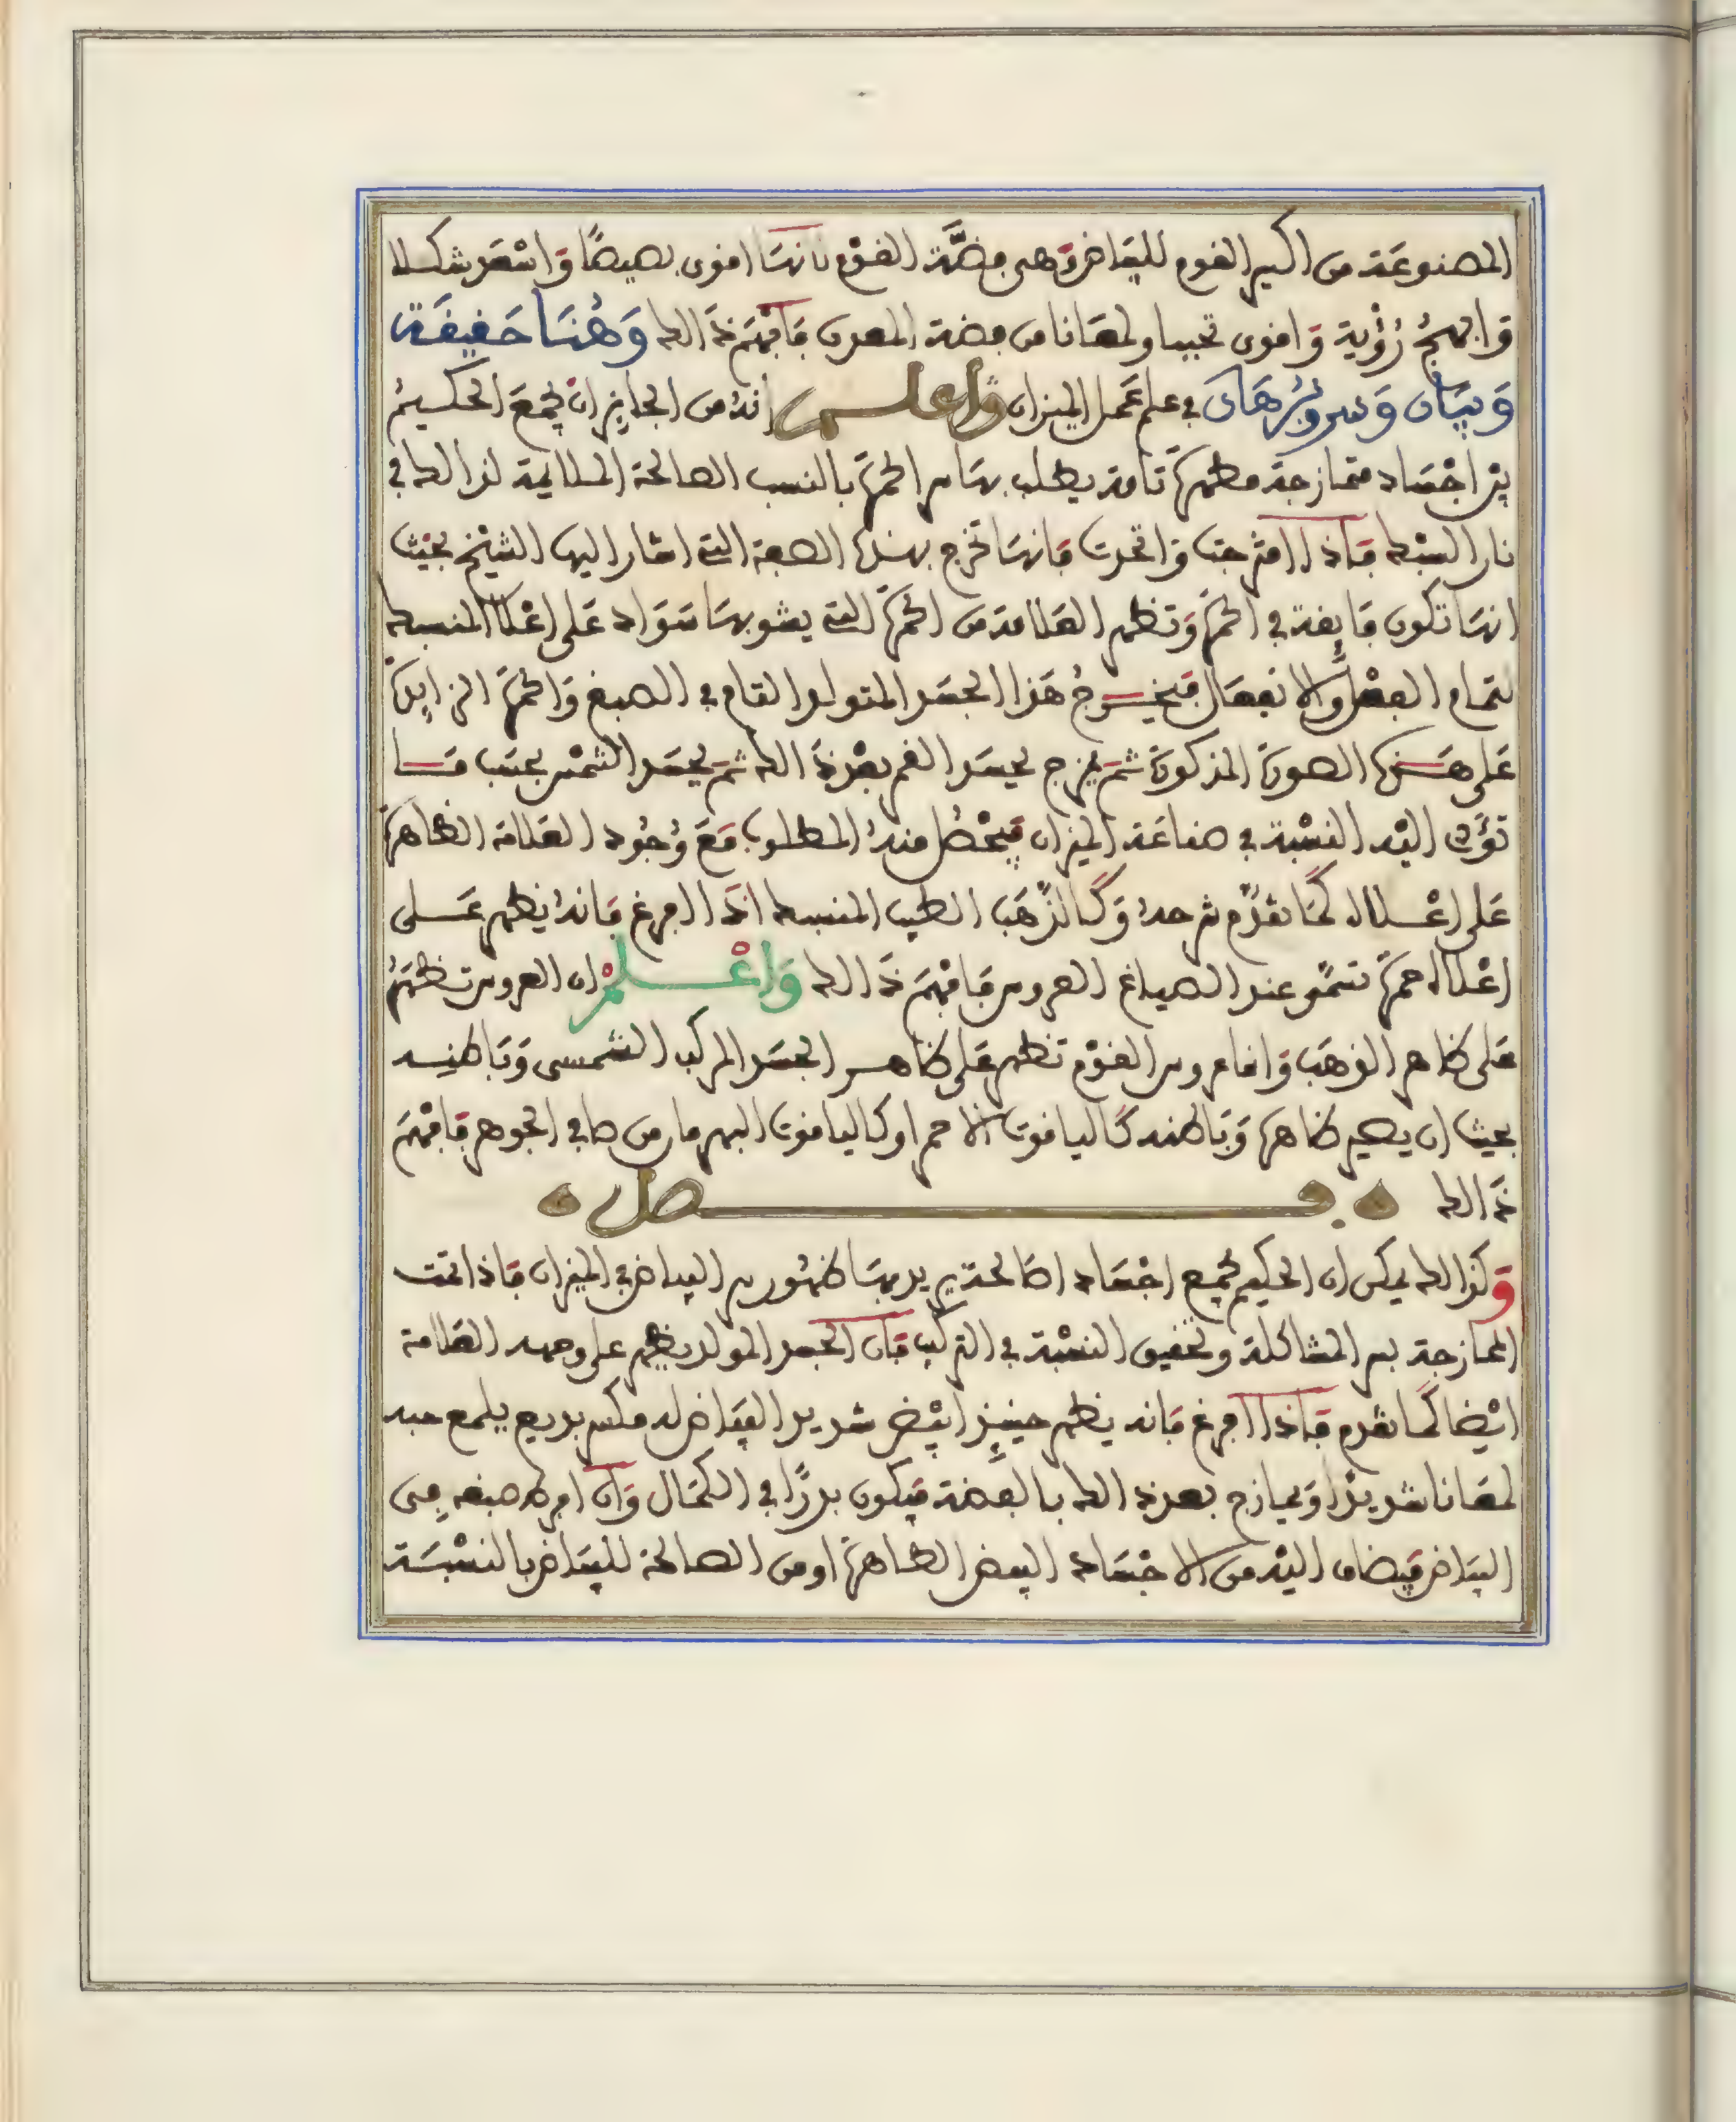 المصنوعَة من اكسير القوم للبَيَاض وَهى فِضَّة القوْم فانهَا اقوى بصيصًا وَاسْعَد شكلا
وَابهجُ رُؤْية وَاقوى تحببا ولمعَانا من فضة المعدن فَافْهَم ذَالك وَهُنَا حَقِيقَة
وَبيَان وَسر وبُرْهَان في علم عَمل الميزان وَاعلم انهُ من الجايز ان يجْمَعَ الحكيمُ
بيْن اجْسَاد متمازجة مطهرَّة تامة يطلب بهَا سر الحمرَة بالنسب الصالحة الملايمة لذالك في
نار السبْك فَاذا امْتزجت وَاتحدت فَانهَا تخرج بهذه الصفة التى اشار اليها الشيْخ بحيْث
انهَا تكون فَايقة في الحمرَة وَتظهر العَلامة من الحمرَة التى يشوبهَا سَوَاد عَلى اعْلا المنسبك
لتمام الفِعْل وَالانفعَال فيَخرجُ هَذا الجسَد المتولد التام في الصبغ وَالحمرَة الزايدَة
عَلى هَذه الصورَة المذكورَة ثمَّ يمزج بجسَد القمر بعْد ذَالك ثمَّ بجسَد الشمْس بحسَب مَا
تؤَدى اليْه النسْبة في صناعَة الميزان فيَحْصُل منهُ المطلوب مَعَ وُجُود العَلامة الظاهرَة
عَلى اعْلاه كمَا تقدَّم شرحهُ وَكَالذَّهَب الطيب المنسبك اذَا افرغ فَانهُ يظهر عَلى
اعْلاه حمرَة تسمَّى عند الصياغ العروس فَافْهَم ذَالك وَاعْلمْ ان العروس تظهَرُ
عَلى ظاهر الذهَب وَاما عروس القوْم تظهر عَلى ظاهر الجسَد المركب الشمسى وَبَاطنه
بحيث ان يصير ظاهرَه وَبَاطنه كَالياقوت الاحمر او كالياقوت البهرمان من صافي الجوهر فَافْهَم
ذَالك فصل
وَكذالك يمكن ان الحكيم يجمع اجْسَادا صَالحة يريد بهَا ظهُور سر البياض في الميزان فَاذا تمت
الممازجة بسر المشاكلة وتحقيق النسْبة في التركيب فَان الجسَد المولد يظهر على وجهه العَلامة
ايْضا كمَا تقدم فَاذا افرغ فَانه يظهر حينيذ ابيْض شديد البيَاض له مكسر بديع يلمع جسه
لمعَانا شديدًا وَيمازج بعد ذالك بالفضة فيَكون بدرًا في الكمَال وَان افرط صبغه في
البيَاض فيضاف اليْه من الاجْسَاد البيض الطاهرَة او من الصالحة للبيَاض بالنسْبَة